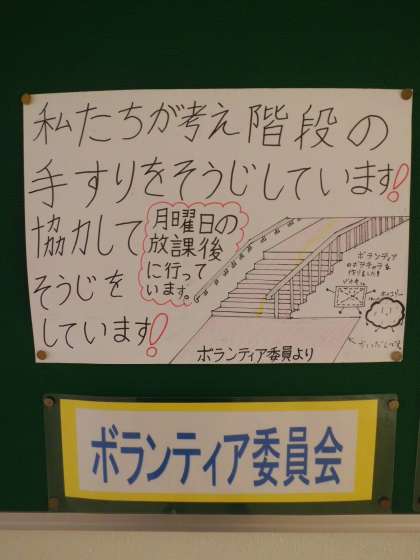 私たちが考え階段の
手すりをそうじしています!
協力して
そうじを
しています!
月曜日の
放課後
に行って
います。
ボランティア
のボラキャラを
作りました!
ボランティア委員より
ボランティア委員会